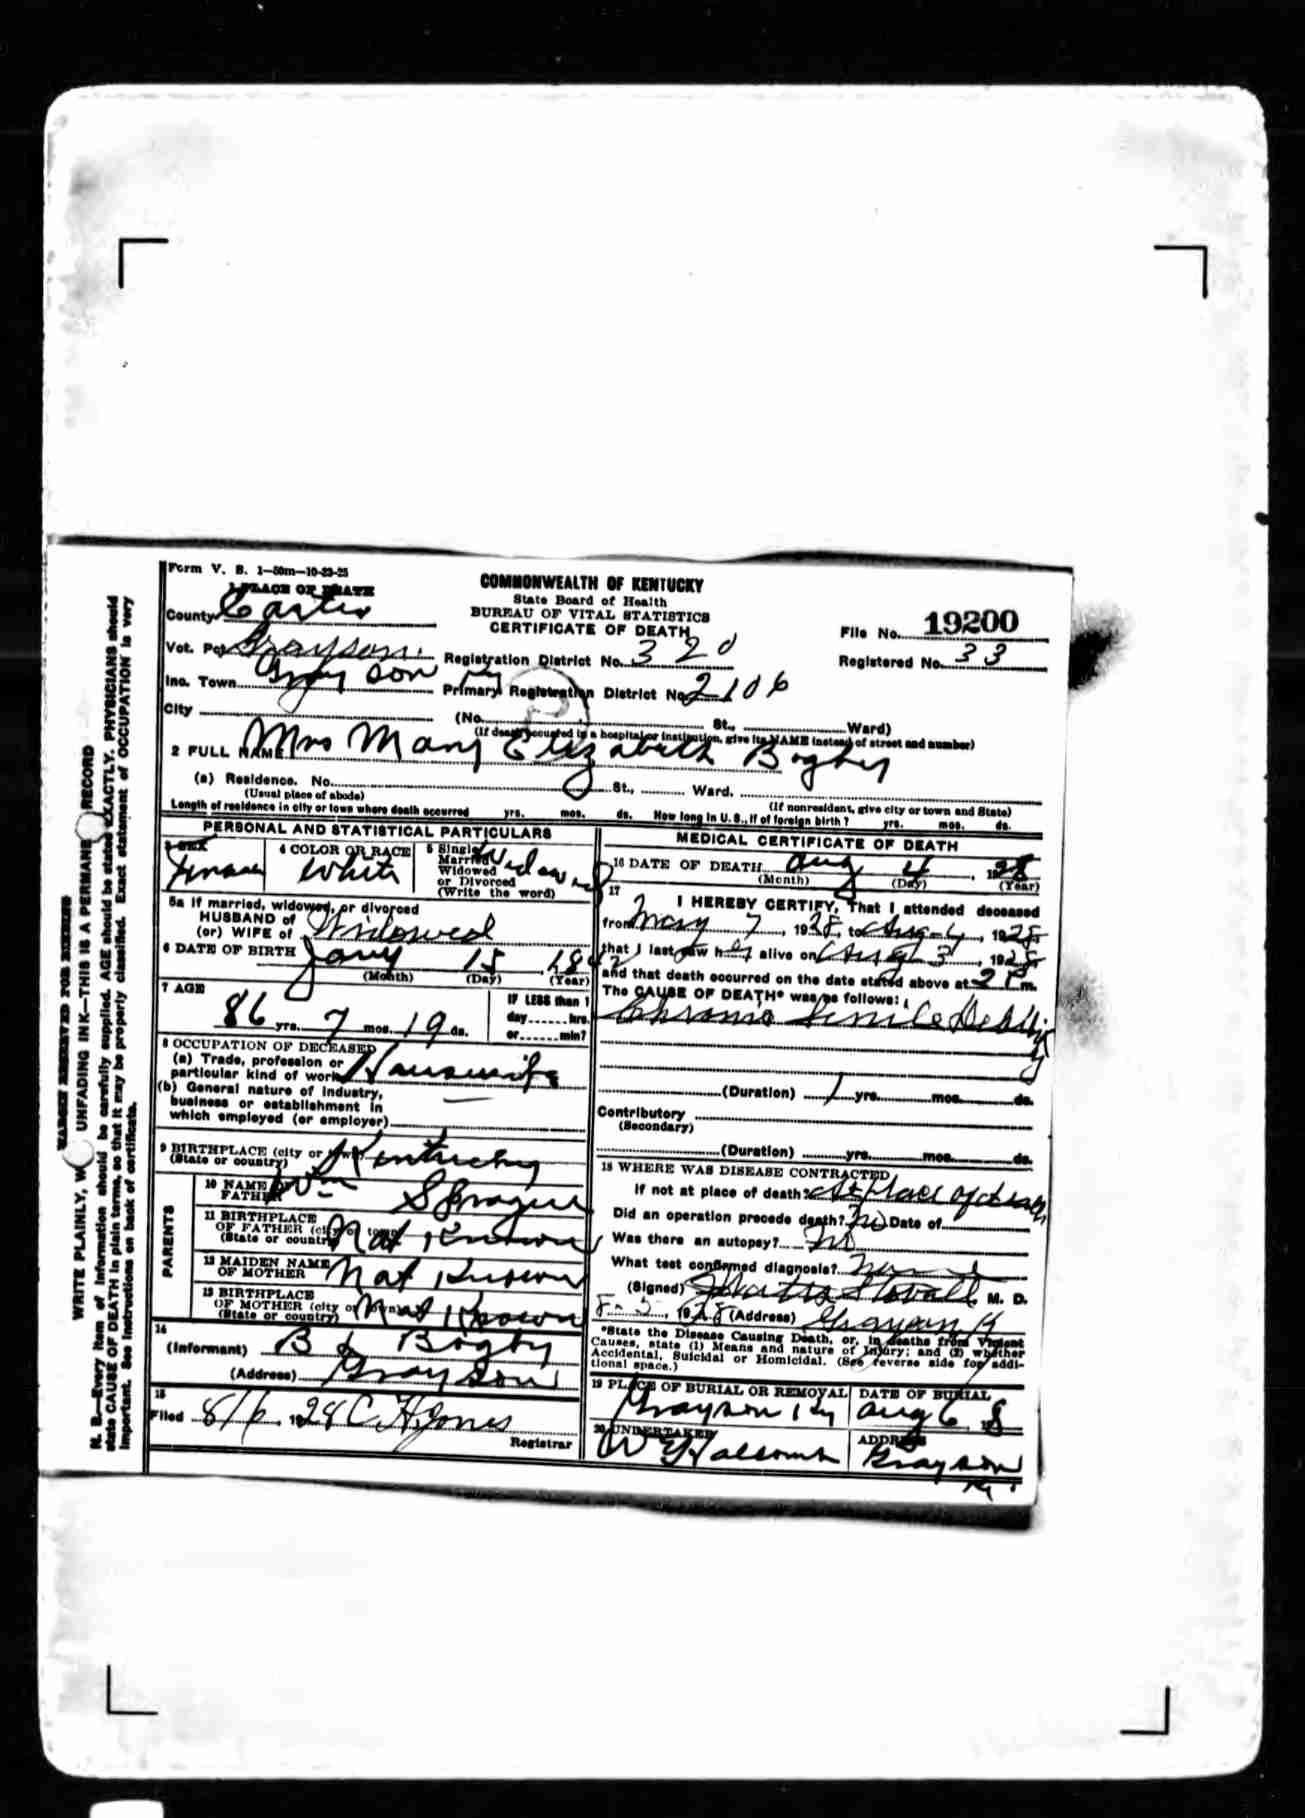 Form V. S. 1—50m—10-23-25
1 PLACE OF DEATH
COMMONWEALTH OF KENTUCKY
State Board of Health
BUREAU OF VITAL STATISTICS
CERTIFICATE OF DEATH
County Carter
File No. 19200
Vot. Pct Grayson
Registration District No. 320
Registered No. 33
Inc. Town Grayson Ky
Primary Registration District No. 2106
City
(No. St., Ward)
(If death occurred in a hospital or institution, give its NAME instead of street and number)
2 FULL NAME Mrs Mary Elizabeth Bagby
(a) Residence. No. St., Ward.
(Usual place of abode)
(If nonresident, give city or town and State)
Length of residence in city or town where death occurred yrs. mos. ds. How long in U. S., if of foreign birth? yrs. mos. ds.
PERSONAL AND STATISTICAL PARTICULARS
3 SEX
Female
4 COLOR OR RACE
White
5 Single
Married
Widowed
or Divorced
(Write the word)
Widowed
5a If married, widowed, or divorced
HUSBAND of
(or) WIFE of Widowed
6 DATE OF BIRTH Jany 15, 1842
(Month) (Day) (Year)
7 AGE
86 yrs. 7 mos. 19 ds.
IF LESS than 1
day hrs.
or min?
8 OCCUPATION OF DECEASED
(a) Trade, profession or
particular kind of work Housewife
(b) General nature of industry,
business or establishment in
which employed (or employer)
9 BIRTHPLACE (city or town)
(State or country) Kentucky
PARENTS
10 NAME OF
FATHER Wm Sprague
11 BIRTHPLACE
OF FATHER (city or town)
(State or country) Not Known
12 MAIDEN NAME
OF MOTHER Not Known
13 BIRTHPLACE
OF MOTHER (city or town)
(State or country) Not Known
14
(Informant) B L Bagby
(Address) Grayson
15
Filed 8/6 1928 C. H. Jones
Registrar
MEDICAL CERTIFICATE OF DEATH
16 DATE OF DEATH Aug 4, 1928
(Month) (Day) (Year)
17
I HEREBY CERTIFY, That I attended deceased
from May 7, 1928, to Aug-4, 1928
that I last saw her alive on Aug 3, 1928
and that death occurred on the date stated above at 2 P m.
The CAUSE OF DEATH* was as follows:
Chronic Senile Debility
(Duration) 1 yrs. mos. ds.
Contributory
(Secondary)
(Duration) yrs. mos. ds.
18 WHERE WAS DISEASE CONTRACTED
If not at place of death? At place of death
Did an operation precede death? No Date of
Was there an autopsy? No
What test confirmed diagnosis? None
(Signed) Watts Stovall M. D.
8-5, 1928 (Address) Grayson K
*State the Disease Causing Death, or, in deaths from Violent
Causes, state (1) Means and nature of Injury; and (2) whether
Accidental, Suicidal or Homicidal. (See reverse side for addi-
tional space.)
19 PLACE OF BURIAL OR REMOVAL
Grayson Ky
DATE OF BURIAL
Aug 6 1928
20 UNDERTAKER
W Halcomb
ADDRESS
Grayson
Ky
MARGIN RESERVED FOR BINDING
WRITE PLAINLY, WITH UNFADING INK—THIS IS A PERMANENT RECORD
N. B.—Every item of information should be carefully supplied. AGE should be stated EXACTLY. PHYSICIANS should
state CAUSE OF DEATH in plain terms, so that it may be properly classified. Exact statement of OCCUPATION is very
important. See instructions on back of certificate.